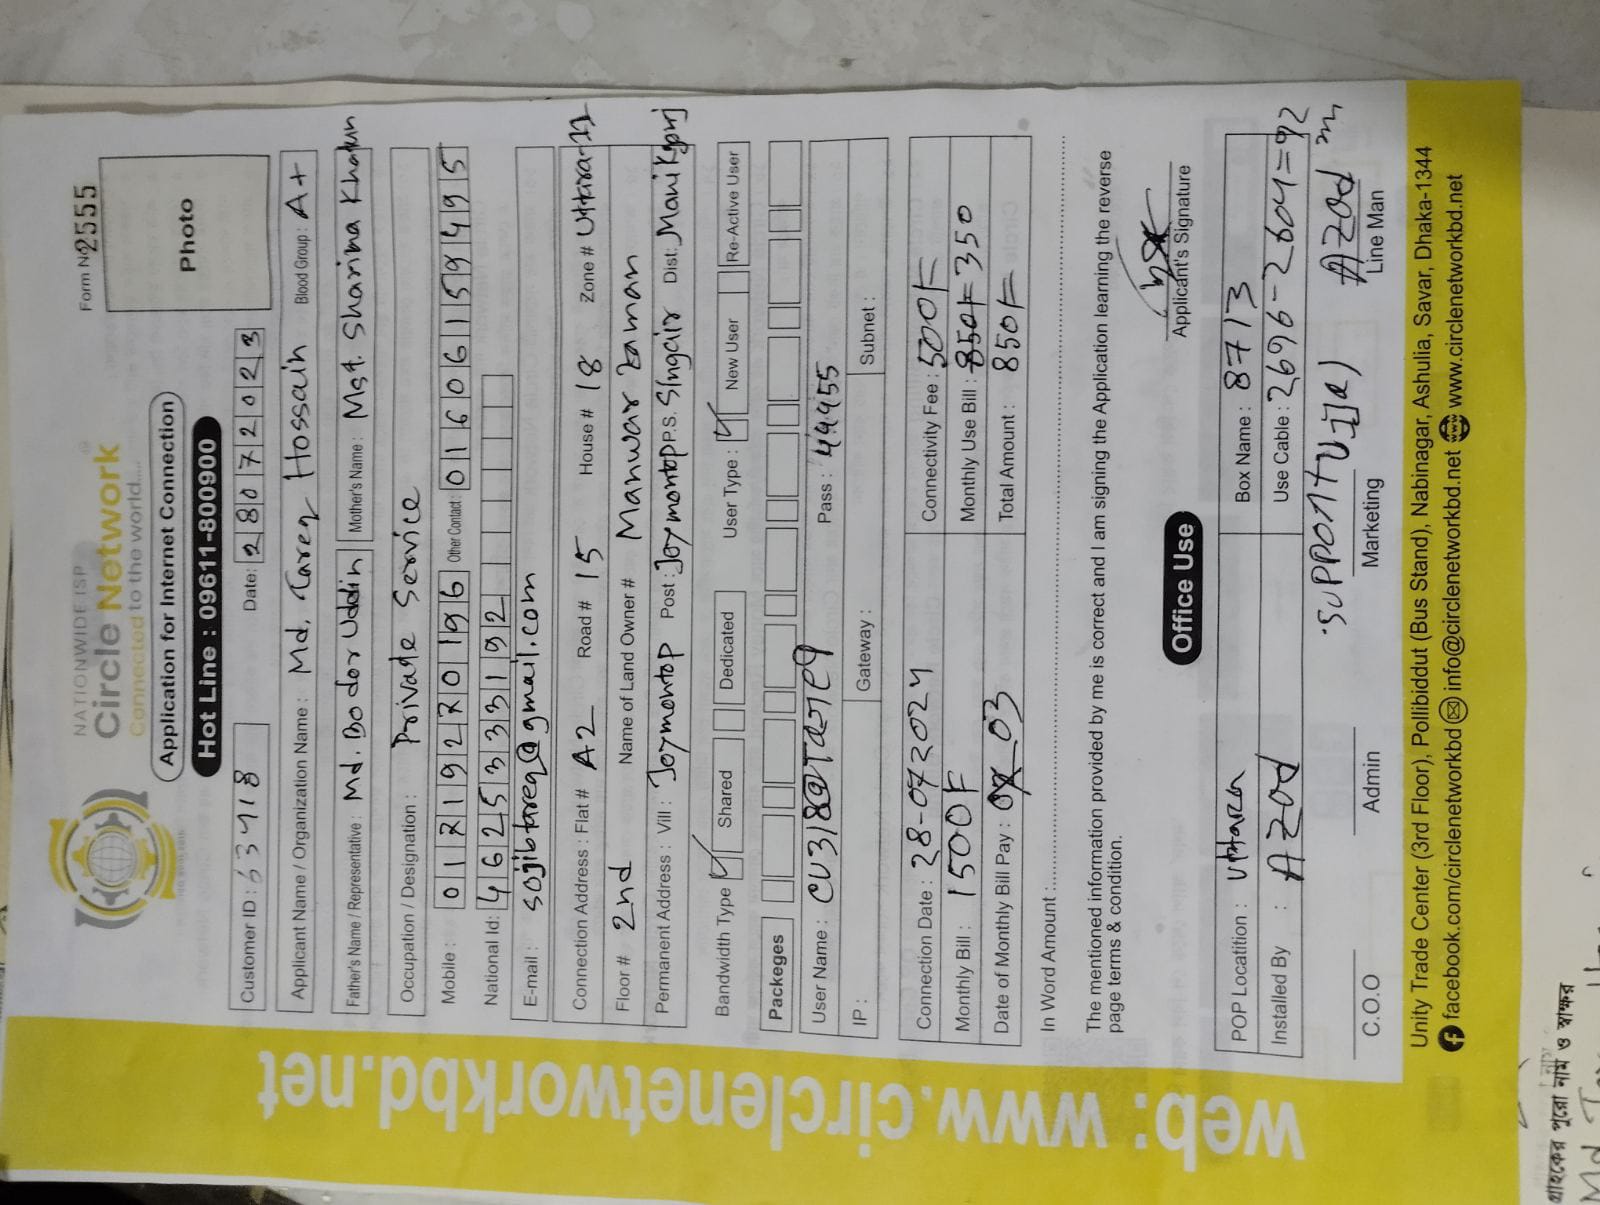 Form No 2555
NATIONWIDE ISP
Circle Network
Connected to the world....
Photo
Application for Internet Connection
Hot Line : 09611-800900
Customer ID : 63418 Date: 28072023
Applicant Name / Organization Name : Md. Tareq Hossain Blood Group : A+
Father's Name / Representative : Md. Bodor Uddin Mother's Name : Mst. Sharina Khatun
Occupation / Designation : Private Service
Mobile : 01719270196 Other Contact: 01606159495
National Id: 4625333192
E-mail : sojibtareq@gmail.com
Connection Address : Flat # A2 Road # 15 House # 18 Zone # Uttara-11
Floor # 2nd Name of Land Owner # Manwar Zaman
Permanent Address : Vill : Joymontop Post : Joymontop P.S. Singair Dist: Manikgonj
Bandwidth Type Shared Dedicated User Type : New User Re-Active User
Packeges
User Name : CU318@Tareq Pass : 44455
IP : Gateway : Subnet :
Connection Date : 28-07-2024 Connectivity Fee : 500/=
Monthly Bill : 1500/= Monthly Use Bill : 850/= 350
Date of Monthly Bill Pay : 03 Total Amount : 850/=
In Word Amount :
The mentioned information provided by me is correct and I am signing the Application learning the reverse
page terms & condition.
Applicant's Signature
Office Use
POP Locatition : Uttara Box Name : 8713
Installed By : Azad Use Cable : 2696-2604=92
Azad
C.O.O Admin Marketing Line Man
Unity Trade Center (3rd Floor), Pollibiddut (Bus Stand), Nabinagar, Ashulia, Savar, Dhaka-1344
facebook.com/circlenetworkbd info@circlenetworkbd.net www.circlenetworkbd.net
web: www.circlenetworkbd.net
গ্রাহকের পুরো নাম ও স্বাক্ষর
Md